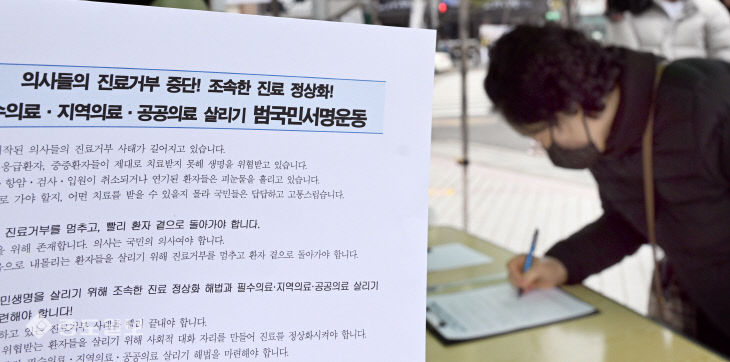 의사들의 진료거부 중단! 조속한 진료 정상화!
수의료·지역의료·공공의료 살리기 범국민서명운동
작된 의사들의 진료거부 사태가 길어지고 있습니다.
응급환자, 중증환자들이 제대로 치료받지 못해 생명을 위협받고 있습니다.
·항암·검사·입원이 취소되거나 연기된 환자들은 피눈물을 흘리고 있습니다.
로 가야 할지, 어떤 치료를 받을 수 있을지 몰라 국민들은 답답하고 고통스럽습니다.
진료거부를 멈추고, 빨리 환자 곁으로 돌아가야 합니다.
을 위해 존재합니다. 의사는 국민의 의사여야 합니다.
으로 내몰리는 환자들을 살리기 위해 진료거부를 멈추고 환자 곁으로 돌아가야 합니다.
민생명을 살리기 위해 조속한 진료 정상화 해법과 필수의료·지역의료·공공의료 살리기
련해야 합니다!
하고 있는 진료거부 사태를 끝내야 합니다.
위협받는 환자들을 살리기 위해 사회적 대화 자리를 만들어 진료를 정상화시켜야 합니다.
필수의료·지역의료·공공의료 살리기 해법을 마련해야 합니다.